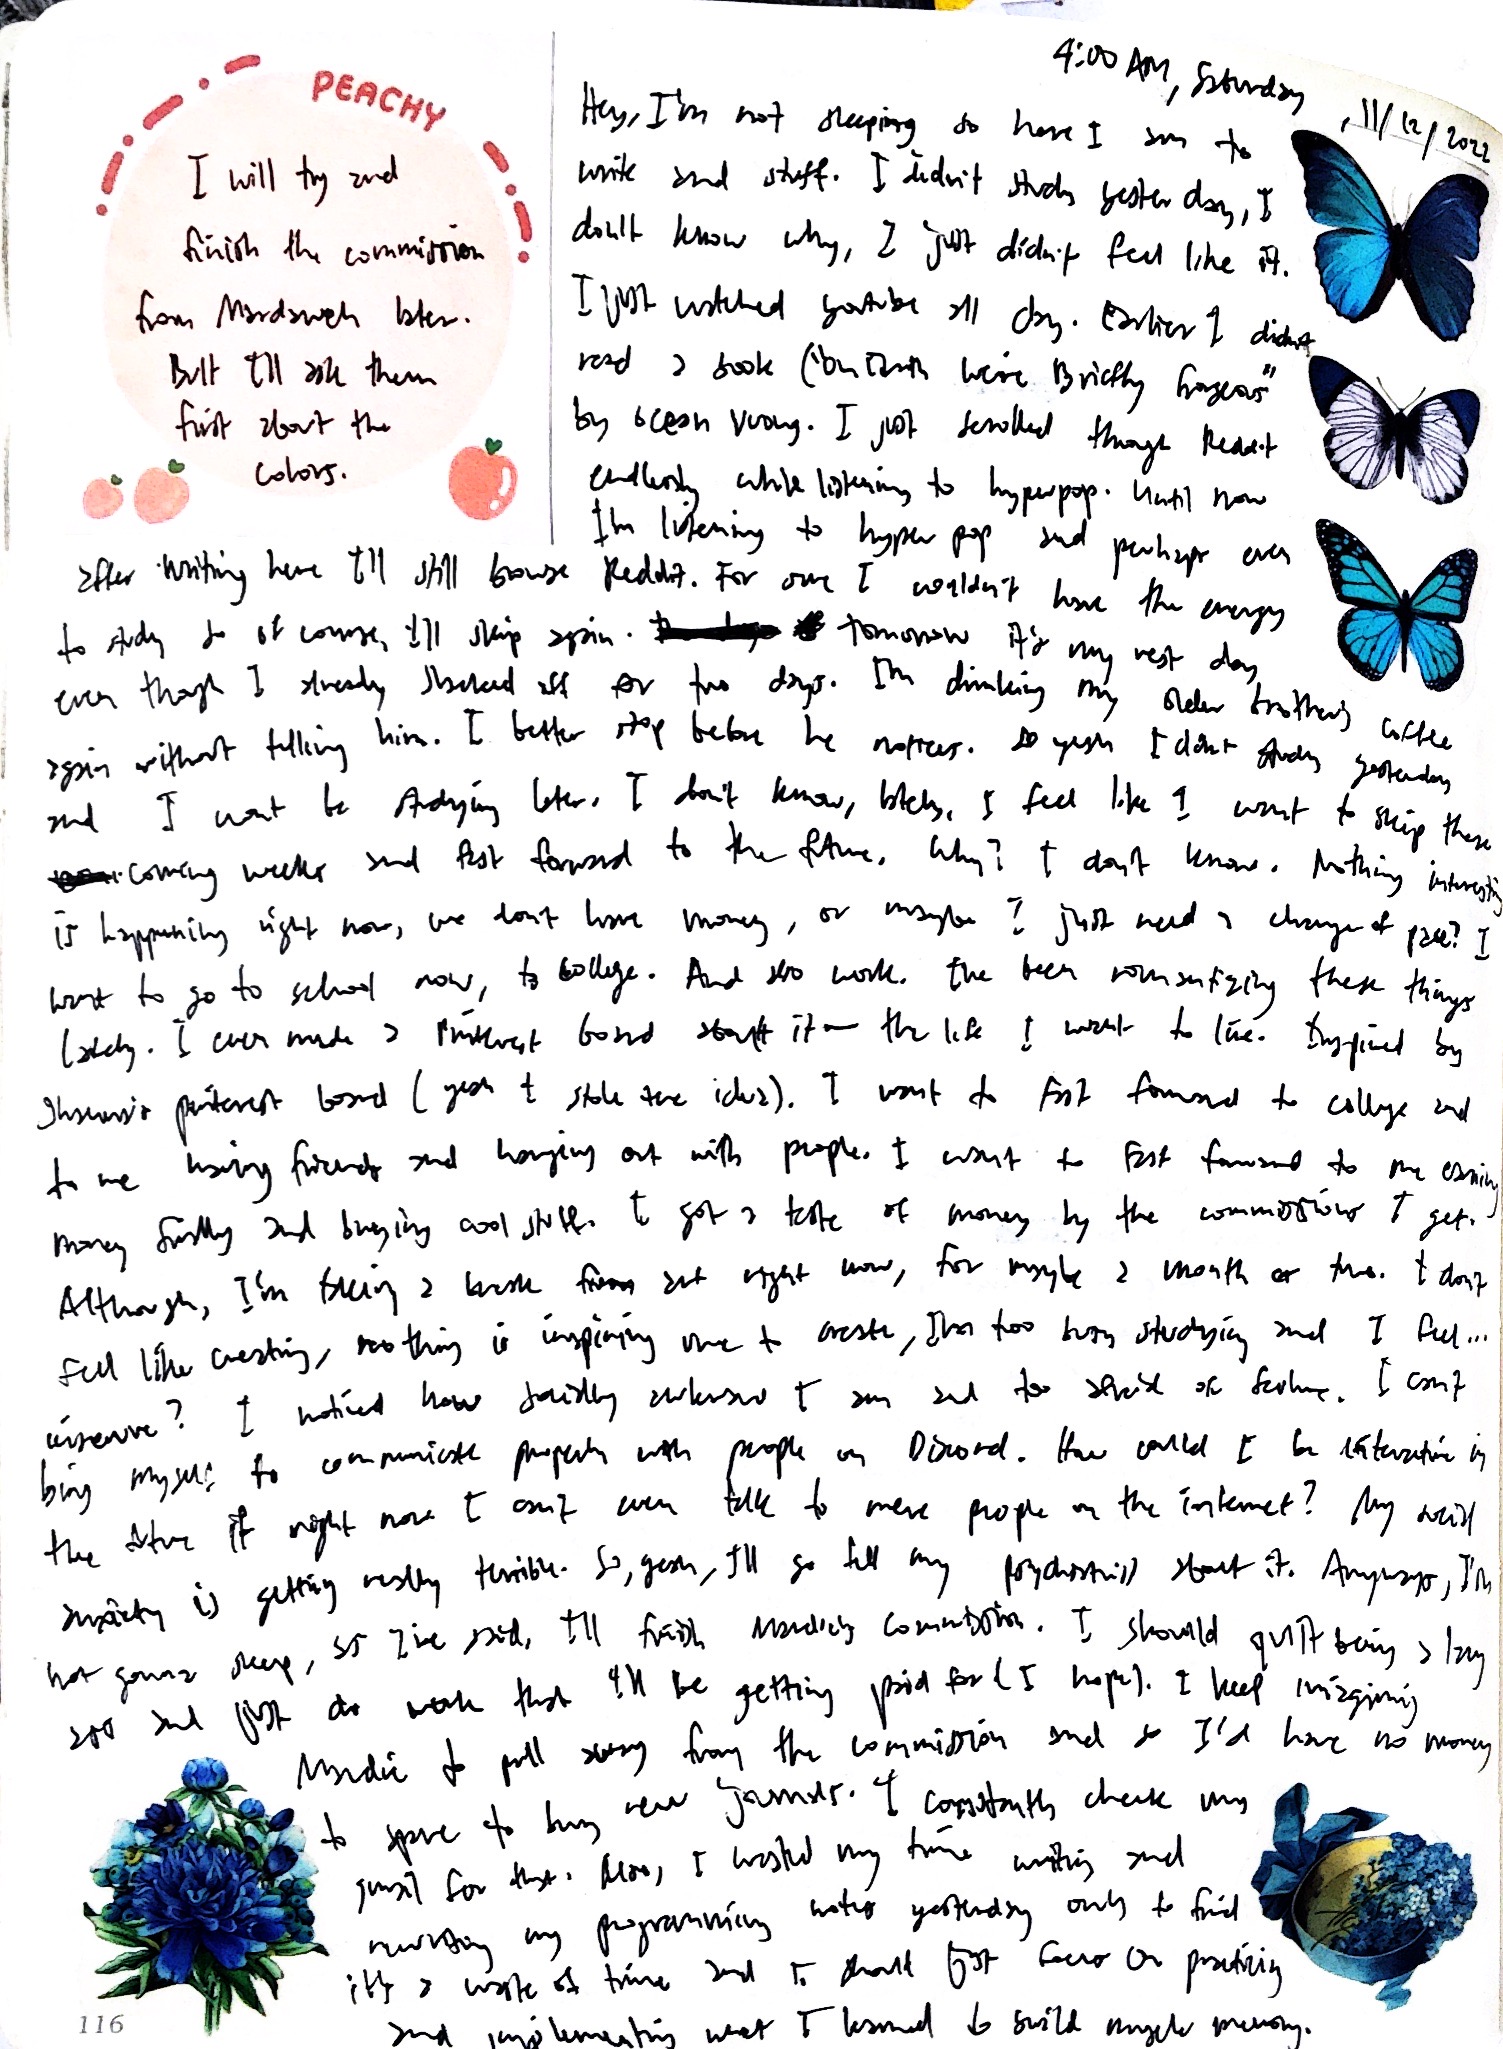 PEACHY
I will try and
finish the commission
from later.
But I'll ask them
first about the
colors.
4:00 AM, Saturday, 11/12/2022
Hey, I'm not sleeping so here I am to
write and stuff. I didn't study yesterday, I
don't know why, I just didn't feel like it.
I just watched youtube all day. Earlier I didnt
read a book ("On Earth We're Briefly Gorgeous"
by Ocean Vuong. I just scrolled through Reddit
endlessly while listening to hyperpop. Until now
I'm listening to hyper pop and perhaps even
after writing here I'll still browse Reddit. For sure I wouldn't have the energy
to study so of course, I'll skip again. tomorrow it's my rest day
even though I already slacked off for two days. I'm drinking my older brother's coffee
again without telling him. I better stop before he notices. So yeah I didnt study yesterday
and I wont be studying later. I don't know, lately, I feel like I want to skip these
coming weeks and fast forward to the future. Why? I don't know. Nothing interesting
is happening right now, we don't have money, or maybe I just need a change of pace? I
want to go to school now, to college. And also work. I've been romantizing these things
lately. I even made a Pinterest board about it — the life I want to live. Inspired by
pinterest board (yeah I stole the idea). I want to fast forward to college and
to me having friends and hanging out with people. I want to fast forward to me earning
money finally and buying cool stuff. I got a taste of money by the commissions I get.
Although, I'm taking a break from art right now, for maybe a month or two. I don't
feel like creating, nothing is inspiring me to create, I'm too busy studying and I feel...
insecure? I noticed how socially awkward I am and too afraid of failure. I can't
bring myself to communicate properly with people on Discord. How could I be interactive in
the future if right now I can't even talk to mere people on the internet? My social
anxiety is getting really terrible. So, yeah, I'll go tell my psychiatrist about it. Anyways, I'm
not gonna sleep, as I've said, I'll finish Mardie's commission. I should quit being a lazy
ass and just do work that I'll be getting paid for (I hope). I keep imagining
Mardie to pull away from the commission and so I'd have no money
to spare to buy new journals. I constantly check my
gmail for that. Also, I wasted my time writing and
rewriting my programming notes yesterday only to find
it's a waste of time and I should just focus on practicing
and implementing what I learned to build muscle memory.
116